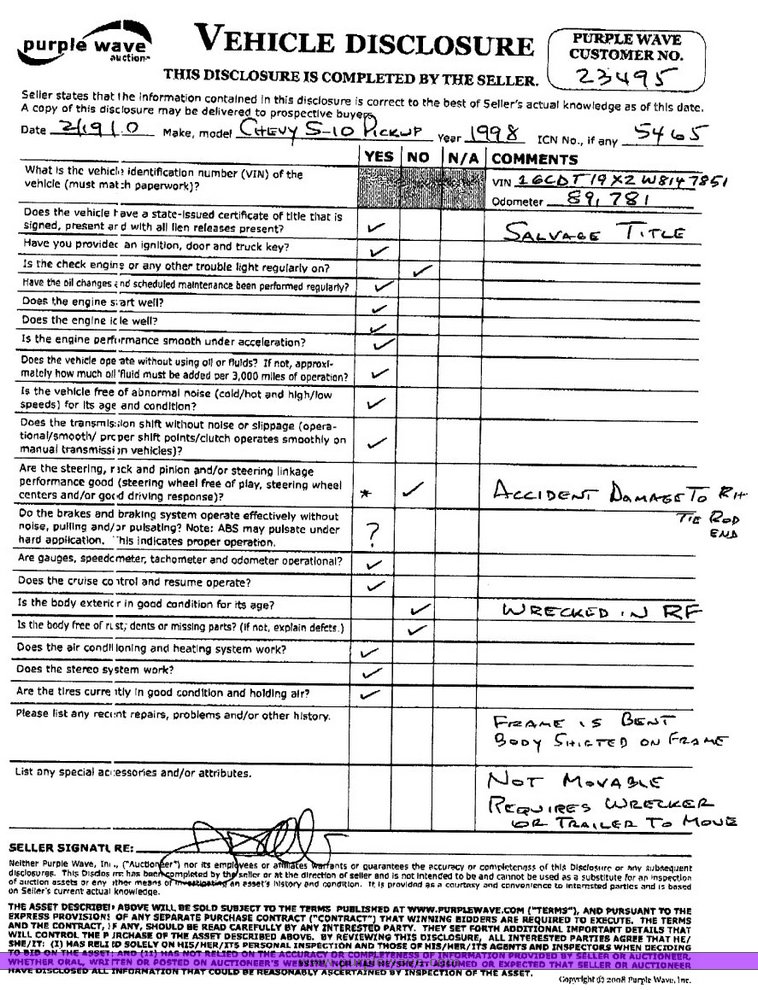 purple wave
auction
VEHICLE DISCLOSURE
PURPLE WAVE
CUSTOMER NO.
23495
THIS DISCLOSURE IS COMPLETED BY THE SELLER.
Seller states that the information contained in this disclosure is correct to the best of Seller's actual knowledge as of this date.
A copy of this disclosure may be delivered to prospective buyers.
Date 2/19/10 Make, model CHEVY S-10 PICKUP Year 1998 ICN No., if any 5465
YES NO N/A COMMENTS
What is the vehicle identification number (VIN) of the
vehicle (must match paperwork)?
VIN 1GCDT19X2W8147851
Odometer 89,781
Does the vehicle have a state-issued certificate of title that is
signed, present and with all lien releases present? ✓ SALVAGE TITLE
Have you provided an ignition, door and truck key? ✓
Is the check engine or any other trouble light regularly on? ✓
Have the oil changes and scheduled maintenance been performed regularly? ✓
Does the engine start well? ✓
Does the engine idle well? ✓
Is the engine performance smooth under acceleration? ✓
Does the vehicle operate without using oil or fluids? If not, approxi-
mately how much oil/fluid must be added per 3,000 miles of operation? ✓
Is the vehicle free of abnormal noise (cold/hot and high/low
speeds) for its age and condition? ✓
Does the transmission shift without noise or slippage (opera-
tional/smooth/ proper shift points/clutch operates smoothly on
manual transmission vehicles)? ✓
Are the steering, rack and pinion and/or steering linkage
performance good (steering wheel free of play, steering wheel
centers and/or good driving response)? * ✓ ACCIDENT DAMAGE TO RH
TIE ROD
END
Do the brakes and braking system operate effectively without
noise, pulling and/or pulsating? Note: ABS may pulsate under
hard application. This indicates proper operation. ?
Are gauges, speedometer, tachometer and odometer operational? ✓
Does the cruise control and resume operate? ✓
Is the body exterior in good condition for its age? ✓ WRECKED IN RF
Is the body free of rust, dents or missing parts? (If not, explain defects.) ✓
Does the air conditioning and heating system work? ✓
Does the stereo system work? ✓
Are the tires currently in good condition and holding air? ✓
Please list any recent repairs, problems and/or other history.
FRAME IS BENT
BODY SHIFTED ON FRAME
List any special accessories and/or attributes.
NOT MOVABLE
REQUIRES WRECKER
OR TRAILER TO MOVE
SELLER SIGNATURE:
Neither Purple Wave, Inc., ("Auctioneer") nor its employees or affiliates warrants or guarantees the accuracy or completeness of this Disclosure or any subsequent
disclosures. This Disclosure has been completed by the seller or at the direction of seller and is not intended to be and cannot be used as a substitute for an inspection
of auction assets or any other means of investigating an asset's history and condition. It is provided as a courtesy and convenience to interested parties and is based
on Seller's current actual knowledge.
THE ASSET DESCRIBED ABOVE WILL BE SOLD SUBJECT TO THE TERMS PUBLISHED AT WWW.PURPLEWAVE.COM ("TERMS"), AND PURSUANT TO THE
EXPRESS PROVISIONS OF ANY SEPARATE PURCHASE CONTRACT ("CONTRACT") THAT WINNING BIDDERS ARE REQUIRED TO EXECUTE. THE TERMS
AND THE CONTRACT, IF ANY, SHOULD BE READ CAREFULLY BY ANY INTERESTED PARTY. THEY SET FORTH ADDITIONAL IMPORTANT DETAILS THAT
WILL CONTROL THE PURCHASE OF THE ASSET DESCRIBED ABOVE. BY REVIEWING THIS DISCLOSURE, ALL INTERESTED PARTIES AGREE THAT HE/
SHE/IT: (I) HAS RELIED SOLELY ON HIS/HER/ITS PERSONAL INSPECTION AND THOSE OF HIS/HER/ITS AGENTS AND INSPECTORS WHEN DECIDING
TO BID ON THE ASSET; AND (II) HAS NOT RELIED ON THE ACCURACY OR COMPLETENESS OF INFORMATION PROVIDED BY SELLER OR AUCTIONEER,
WHETHER ORAL, WRITTEN OR POSTED ON AUCTIONEER'S ASSUMED OR EXPECTED THAT SELLER OR AUCTIONEER
HAVE DISCLOSED ALL INFORMATION THAT COULD BE REASONABLY ASCERTAINED BY INSPECTION OF THE ASSET.
Copyright © 2008 Purple Wave, Inc.